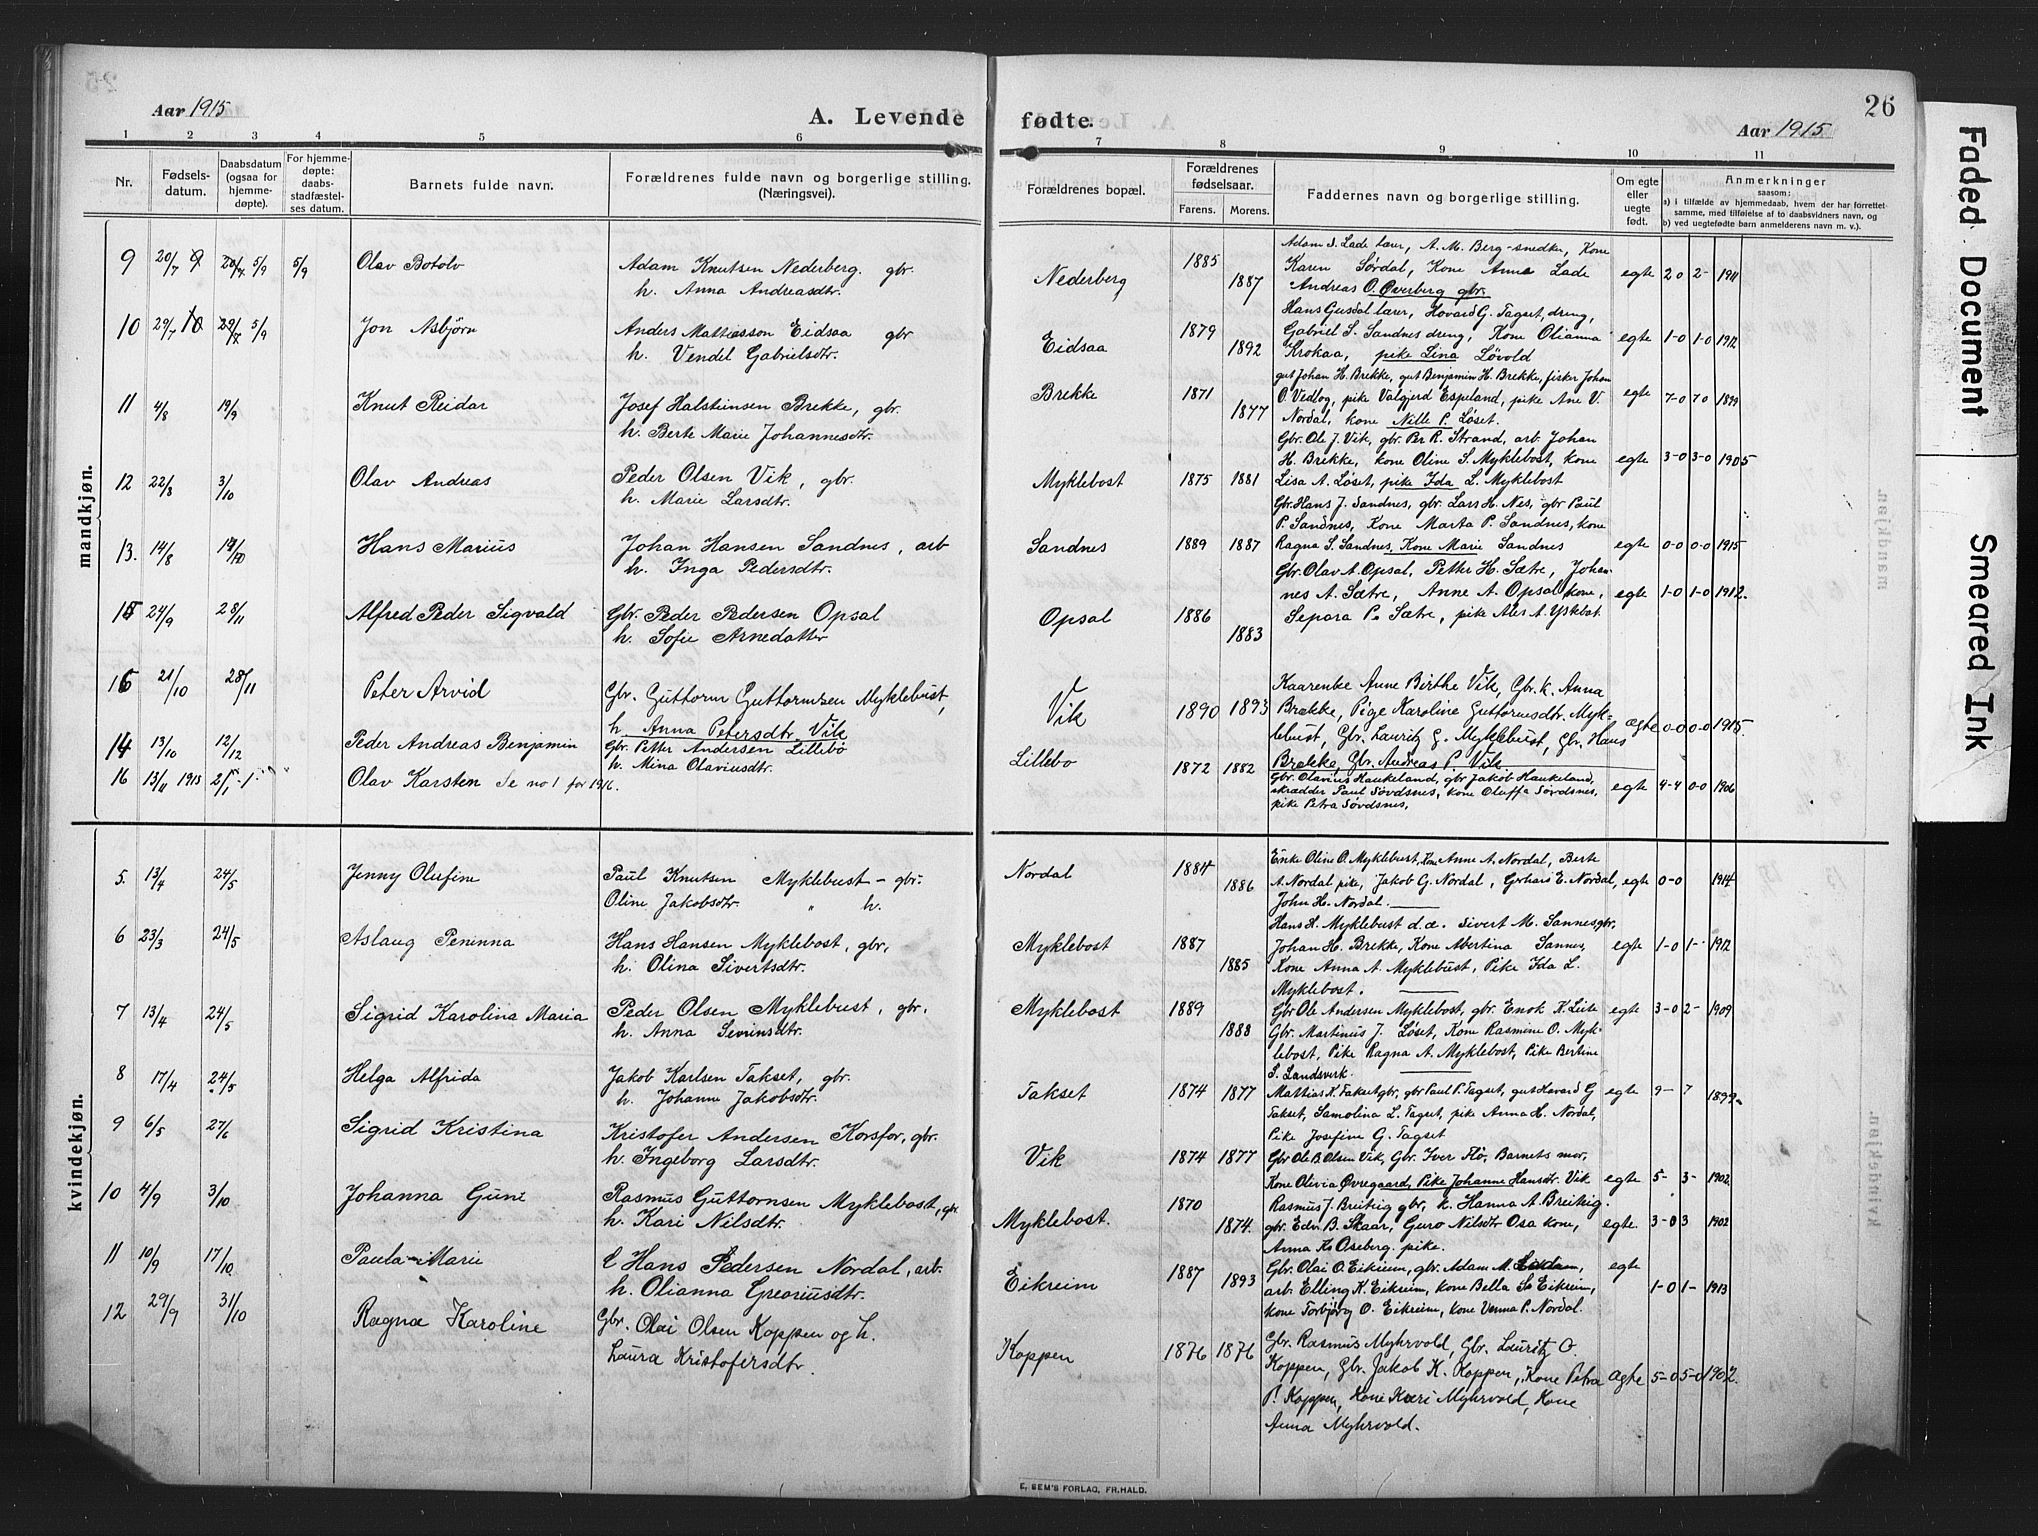 26
Aar 1915
A. Levende fødte.
Aar 1915
1 2 3 4 5 6 7 8 9 10 11
Nr.
Fødsels-
datum.
Daabsdatum
(ogsaa for
hjemme-
døpte).
For hjemme-
døpte:
daabs-
stadfæstel-
ses datum.
Barnets fulde navn.
Forældrenes fulde navn og borgerlige stilling.
(Næringsvei).
Forældrenes bopæl.
Forældrenes
fødselsaar.
Farens. Morens.
Faddernes navn og borgerlige stilling.
Om egte
eller
uegte
født.
Anmerkninger
saasom:
a) i tilfælde av hjemmedaab, hvem der har forrettet-
samme, med tilføielse af to daabsvidners navn, og
b) ved uegtefødte børn anmelderens navn m. v.).
mandkjøn.
9 20/7 5/9 5/9 Olav Botolv
Adam Knutsen Nederberg. gbr.
h. Anna Andreasdtr.
Nederberg 1885 1887
Adam S. Lade lærer, A. M. Berg - snedker, Kone
Karen Sørdal, Kone Anne Lade
Andreas O. Øverberg gbr.
egte 2 0 2 - 1911
10 29/7 5/9 Jon Asbjørn
Anders Mattiasson Eidsaa gbr
h. Vendel Gabrielsdtr.
Eidsaa 1879 1892
Hans Gusdal lærer, Hovard G. Taget, dreng,
Gabriel S. Sandnes dreng, Kone Olianna
Krokaa, pike Lina Løvold
egte 1-0 1-0 1912
11 4/8 19/9 Knut Reidar
Josef Halsteinsen Brekke, gbr.
h. Berte Marie Johannesdtr.
Brekke 1871 1877
gut Johan H. Brekke, gut Benjamin H. Brekke, fisker Johan
O. Vedlog, pike Valgjerd Espeland, pike Ane V.
Nordal, kone Nille P. Løset.
egte 7-0 7 0 1899
12 22/8 3/10 Olav Andreas
Peder Olsen Vik, gbr.
h. Marie Larsdtr.
Myklebost 1875 1881
Gbr. Ole J. Vik, gbr. Per R. Strand, arb. Johan
H. Brekke, kone Oline S. Myklebost, kone
Lisa A. Løset, pike Ida L. Myklebost
egte 3-0 3-0 1905
13. 14/8 Hans Marius
Johan Hansen Sandnes, arb
h. Inga Pedersdtr.
Sandnes 1889 1887
Gbr. Hans J. Sandnes, gbr Lars H. Nes, gbr Paul
P. Sandnes, Kone Marta P. Sandnes, kone
Ragna S. Sandnes, Kone Marie Sandnes
egte 0-0 0-0 1915
15 24/9 28/11 Alfred Peder Sigvald
Gbr. Peder Pedersen Opsal
h. Sofie Arnedatter
Opsal 1886 1883
Gbr. Olav A. Opsal, Petter H. Sætre, Johan-
nes A. Sætre, Anne A. Opsal kone,
Separa P. Sætre, pike A. Yksebat
egte 1-0 1-0 1912.
16 21/10 28/11 Peter Arvid
Gbr. Guttorm Guttormsen Myklebust,
h. Anna Petersdtr. Vik
Vik 1890 1893
Kaarenke Anne Birthe Vik, Gbr. k. Anna
Brekke, Pige Karoline Guttormsdtr. Myk-
lebust, Gbr. Lauritz G. Myklebust, Gbr. Hans
Brekke, Gbr. Andreas P. Vik
ægte 0-0 0-0 1915.
14 13/10 12/12 Peder Andreas Benjamin
Gbr. Petter Andersen Lillebø
h. Mina Olaviusdtr.
Lillebø 1872 1882
Gbr. Olavius Haukeland, gbr Jakob Haukeland,
skrædder Paul Søvdsnes, kone Oluffa Søvdsnes,
pike Petra Søvdsnes,
egte 4-4 0-0 1906
16 13/11 1915 Olav Karsten Se no 1 for 1916.
kvindekjøn.
5. 13/4 24/5 Jenny Olufine
Paul Knutsen Myklebust - gbr.
Oline Jakobsdtr. " h.
Nordal 1884 1886
Enke Oline O. Myklebust, Kone Anne A. Nordal, Berte
A. Nordal pike, Jakob G. Nordal, Gerhard E. Nordal,
John H. Nordal.
egte 0-0 1914
6 23/3 24/5 Aslaug Peninna
Hans Hansen Myklebost, gbr,
h. Olina Sivertsdtr.
Myklebost 1887 1885
Hans H. Myklebust d.æ. Sivert M. Sannes, gbr,
Johan H. Brekke, Kone Abertina Sannes,
Kone Anna A. Myklebust, Pike Ida L.
Myklebost.
egte 1-0 1- 1912
7 13/4 24/5 Sigrid Karolina Maria
Peder Olsen Myklebust, gbr,
h. Anna Severinsdtr.
Myklebost 1889 1888
Gbr Ole Andersen Myklebost, gbr. Enok K. Leite
Gbr. Martinus J. Løset, Kone Rasmine O. Myk-
lebost, Pike Ragna A. Myklebost, Pike Bertine
S. Landsverk.
egte 3-0 2- 1909
8 17/4 24/5 Helga Alfrida
Jakob Karlsen Takset, gbr.
h. Johanne Jakobsdtr.
Takset 1874 1877
Mattias K. Taksetgbr, gbr Paul P. Tagset, gut Havard G
Takset, Samolina L. Tagset, pike Anna H. Nordal,
Pike Josefine G. Tagset
egte 9- 7 1899.
9 6/5 27/6 Sigrid Kristina
Kristofer Andersen Korsfor, gbr.
h. Ingeborg Larsdtr.
Vik 1874 1877
Gbr Ole B. Olsen Vik, Gbr. Iver Flø, Barnets mor,
Kone Olivia Øvregaard, Pike Johanne Hansdtr. Vik
egte 5- 3- 1902
10 4/9 3/10 Johanna Guni
Rasmus Guttormsen Myklebost, gbr
h. Kari Nilsdtr.
Myklebost. 1870 1874.
Rasmus J. Breiteig gbr, k. Hanna A. Breiteig.
gbr. Edv B. Skaar, Guro Nilsdtr Osa kone,
Anna K. Oseberg. pike.
egte 3-0 3 1902
11 10/9 17/10 Paula Marie
Hans Pedersen Nordal, arb.
h. Olianna Greoriusdtr.
Eikreim 1887 1893
Gbr. Olai O. Eikreim, gbr. Adam M.
arb. Elling K. Eikreim, kone Bella S. Eikreim,
kone Torbjørg O. Eikreim, kone Venna P. Nordal.
egte 1-0 1- 1913
12 29/9 31/10 Ragna Karoline
Gbr. Olai Olsen Koppen og h.
Laura Kristofersdtr.
Koppen 1876 1876
Gbr. Rasmus Myhrvold, Gbr. Lauritz O.
Koppen, Gbr. Jakob K. Koppen, Kone Petra
P. Koppen, Kone Kari Myhrvold, Kone
Anna Myhrvold.
ægte 5-0 5-0 1902.
E. SEM'S FORLAG, FR.HALD.
Faded Document
Smeared Ink